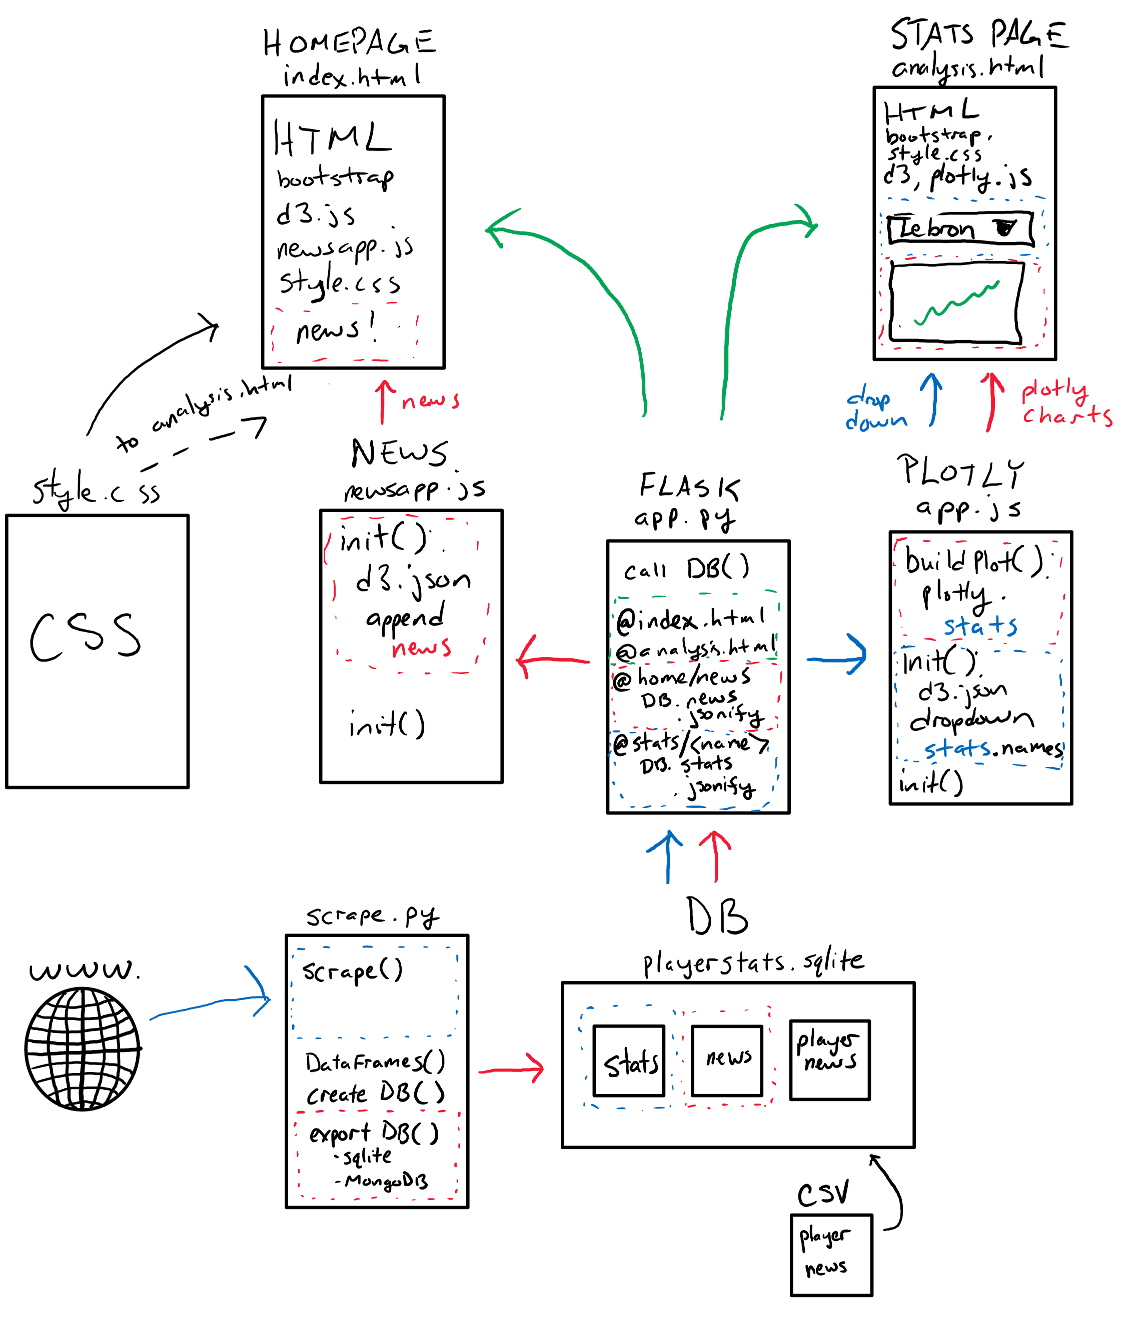 HOMEPAGE
index.html
HTML
bootstrap
d3.js
newsapp.js
style.css
news!
STATS PAGE
analysis.html
HTML
bootstrap,
style.css
d3, plotly.js
Lebron
to analysis.html
news
drop
down
plotly
charts
style.css
CSS
NEWS
newsapp.js
init():
d3.json
append
news
init()
FLASK
app.py
call DB()
@index.html
@analysis.html
@home/news
DB.news
.jsonify
@stats/<name>
DB.stats
.jsonify
PLOTLY
app.js
buildPlot():
plotly.
stats
init():
d3.json
dropdown
stats.names
init()
www.
scrape.py
scrape()
DataFrames()
create DB()
export DB()
-sqlite
-MongoDB
DB
playerstats.sqlite
stats
news
player
news
CSV
player
news